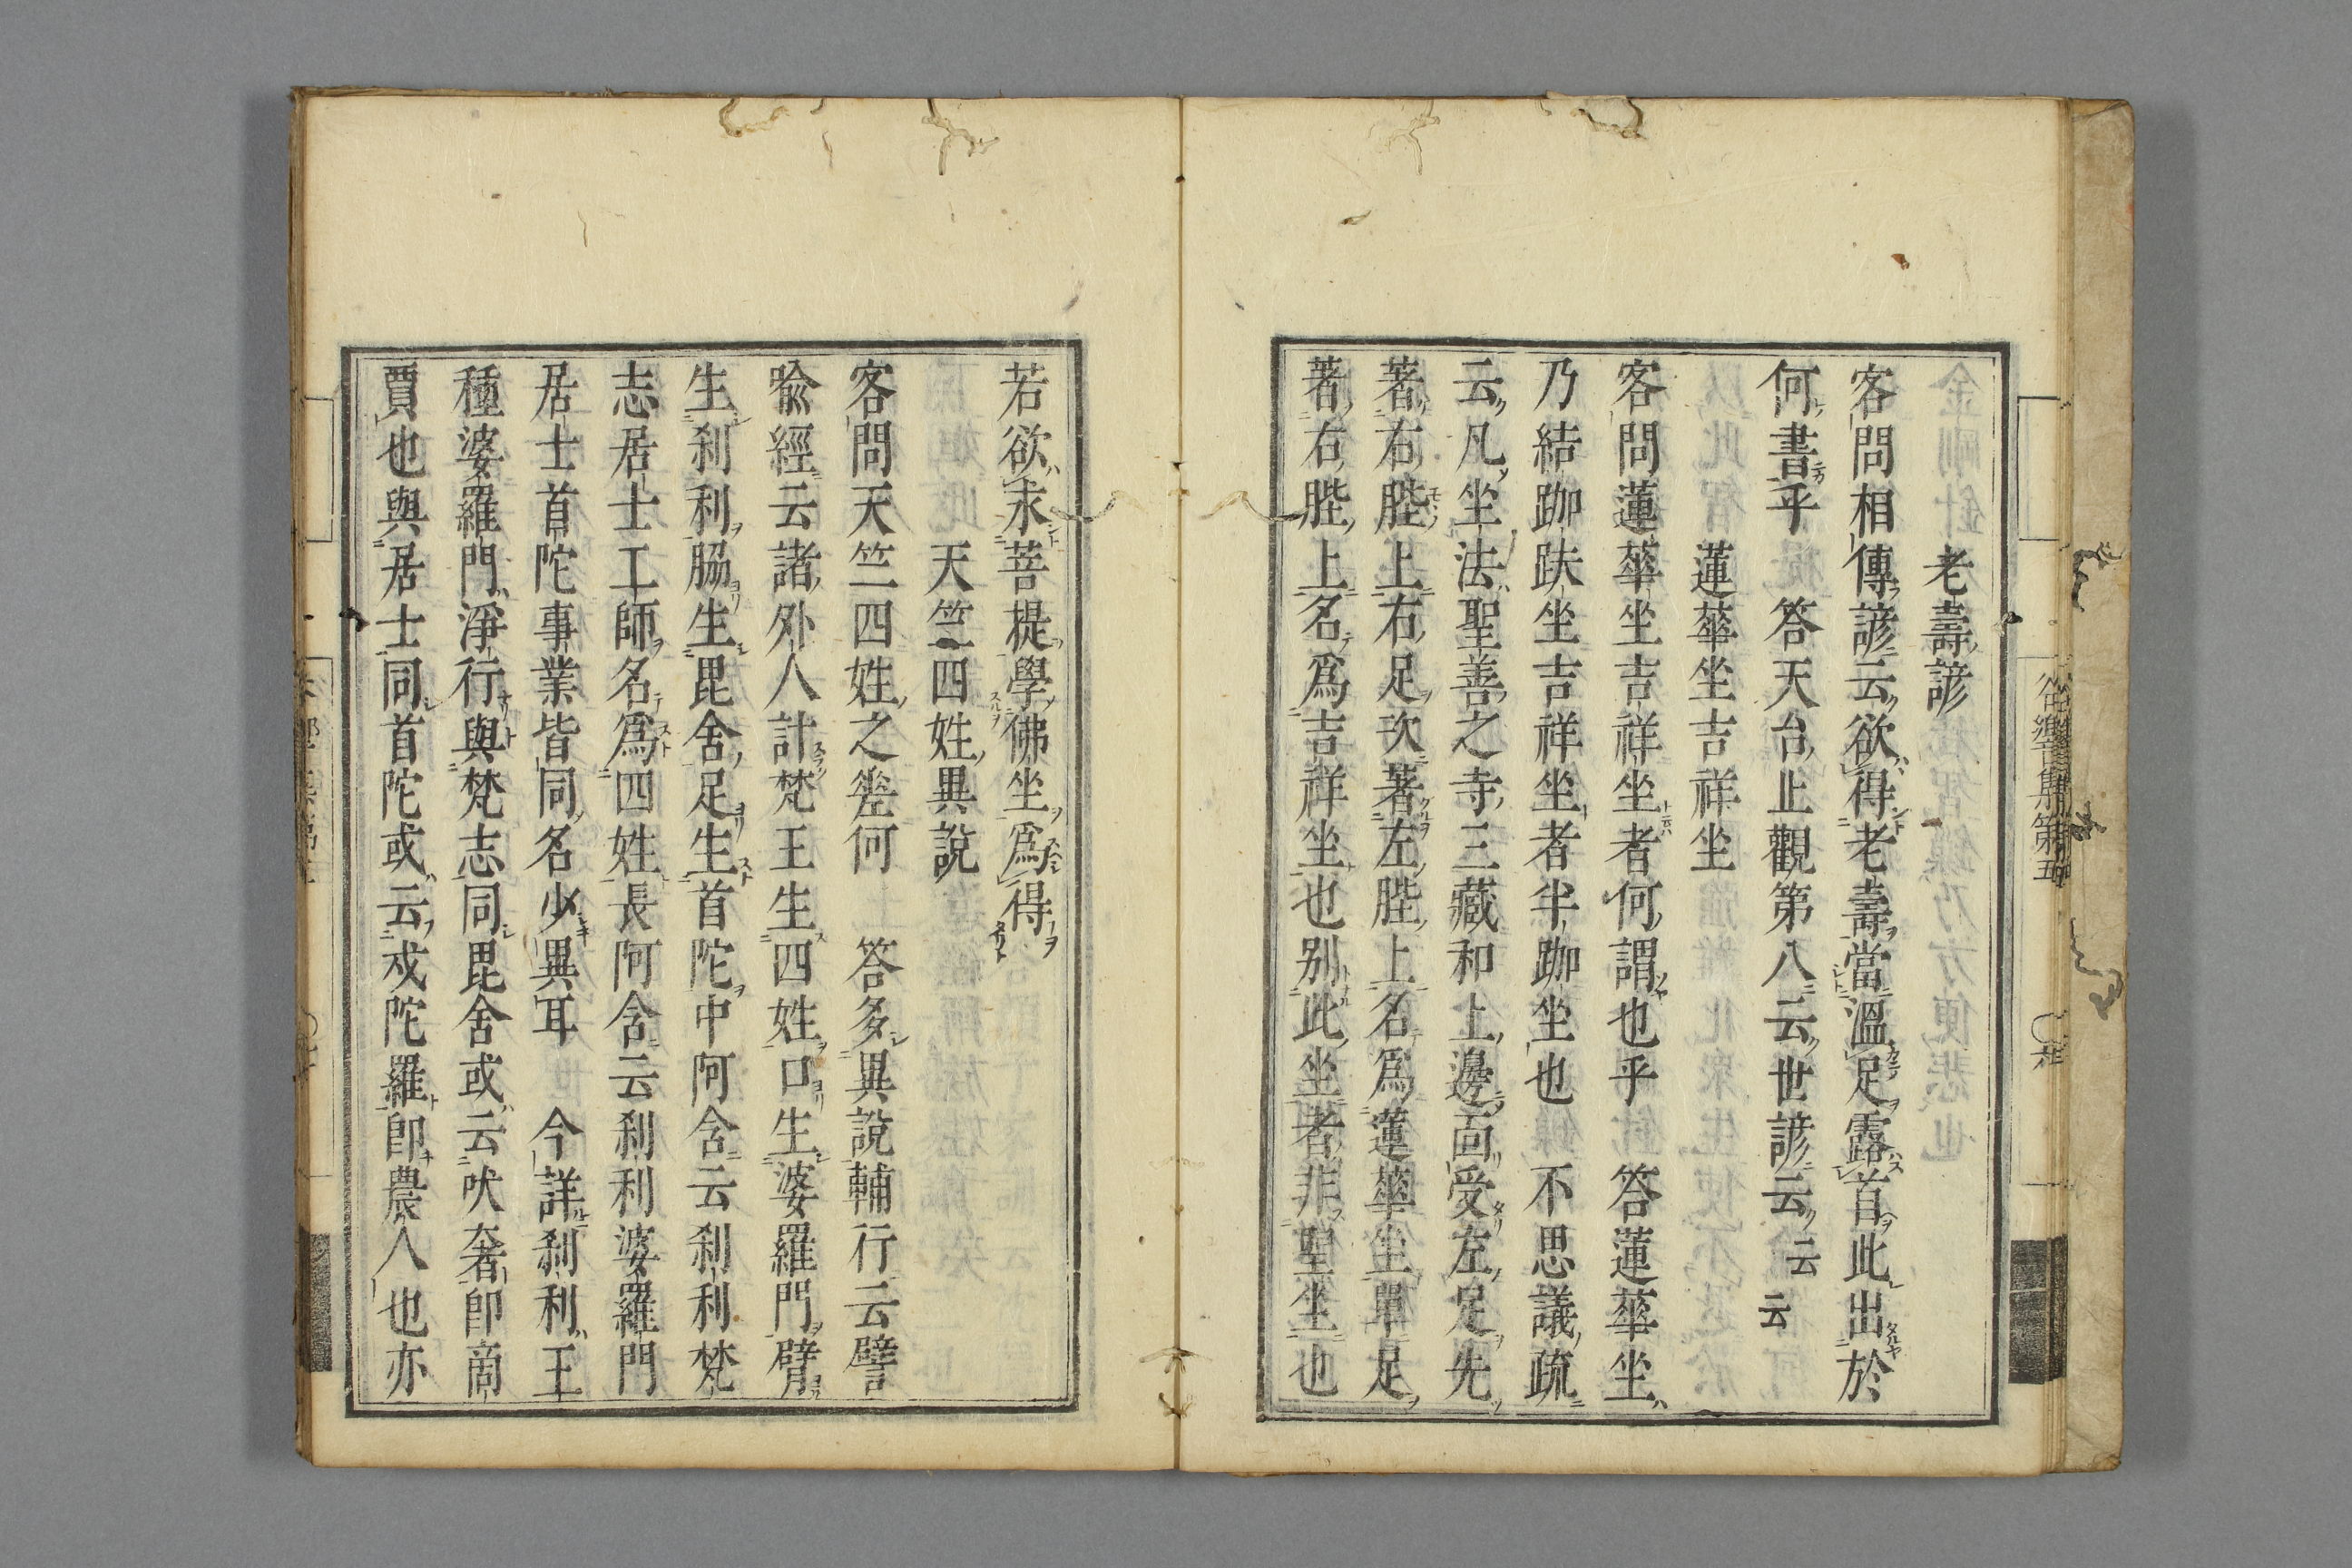 老壽諺
客問相傳諺云欲得老壽當溫足露首此出於
何書乎　答天台止觀第八云世諺云云云
蓮華坐吉祥坐
客問蓮華坐吉祥坐者何謂也乎　答蓮華坐
乃結跏趺坐吉祥坐者半跏坐也　不思議疏
云凡坐法聖善之寺三藏和上邊面受左足先
著右䏶上右足次著左䏶上名爲蓮華坐單足
著右䏶上名爲吉祥坐也别此坐者非聖坐也
若欲求菩提學佛坐爲得
天竺四姓異說
客問天竺四姓之差何　答多異說輔行云譬
喩經云諸外人計梵王生四姓口生婆羅門臂
生刹利脇生毘舍足生首陀中阿含云刹利梵
志居士工師名爲四姓長阿含云刹利婆羅門
居士首陀事業皆同名少異耳　今詳刹利王
種婆羅門淨行與梵志同毘舍或云吠奢卽商
賈也與居士同首陀或云戍陀羅卽農人也亦
谷響集第五